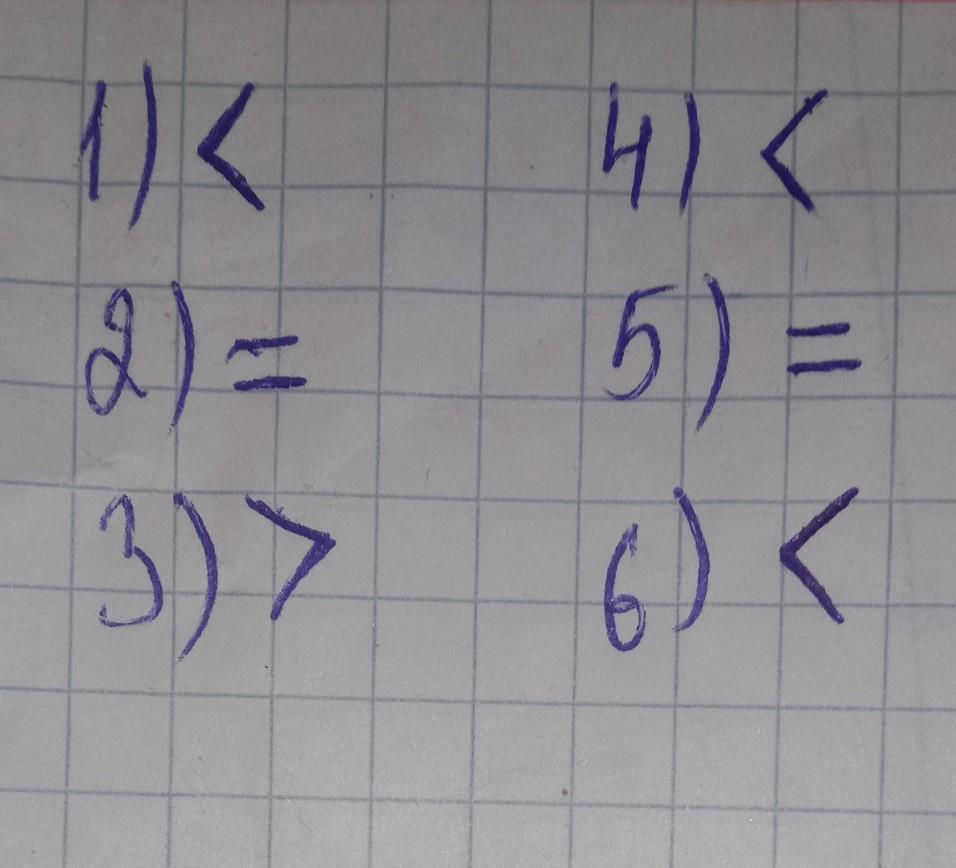 1) <
2) =
3) >
4) <
5) =
6) <